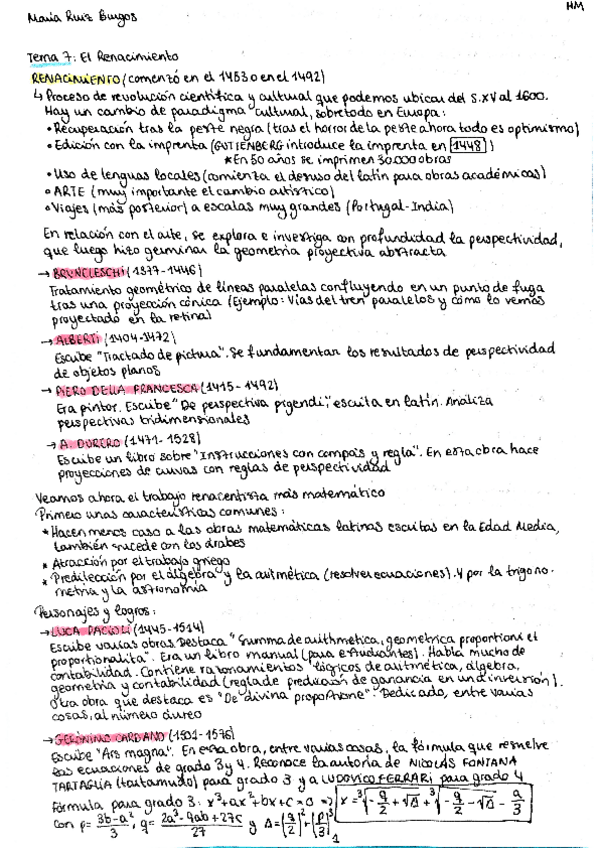 HM
María Ruiz Burgos
Tema 7: El Renacimiento
RENACIMIENTO (comenzó en el 1453 o en el 1492)
↳ Proceso de revolución científica y cultural que podemos ubicar del S.XV al 1600.
Hay un cambio de paradigma cultural, sobretodo en Europa:
• Recuperación tras la peste negra (tras el horror de la peste ahora todo es optimismo)
• Edición con la imprenta (GUTIENBERG introduce la imprenta en 1448)
* En 50 años se imprimen 30.000 obras
• Uso de lenguas locales (comienza el desuso del latín para obras académicas)
• ARTE (muy importante el cambio artístico)
• Viajes (más posterior) a escalas muy grandes (Portugal-India)
En relación con el arte, se explora e investiga con profundidad la perspectividad,
que luego hizo germinar la geometría proyectiva abstracta
→ BRUNELESCHI (1377-1446)
Tratamiento geométrico de líneas paralelas confluyendo en un punto de fuga
tras una proyección cónica (Ejemplo: Vías del tren paralelos y cómo lo vemos
proyectado en la retina)
→ ALBERTI (1404-1472)
Escribe "Tractado de pictura". Se fundamentan los resultados de perspectividad
de objetos planos
→ PIERO DELLA FRANCESCA (1415-1492)
Era pintor. Escribe "De perspectiva pigendi", escrita en latín. Analiza
perspectivas tridimensionales
→ A. DURERO (1471-1528)
Escribe un libro sobre "Instrucciones con compás y regla". En esta obra hace
proyecciones de curvas con reglas de perspectividad
Veamos ahora el trabajo renacentista más matemático
Primero unas características comunes:
* Hacen menos caso a las obras matemáticas latinas escritas en la Edad Media,
también sucede con los árabes
* Atracción por el trabajo griego
* Predilección por el álgebra y la aritmética (resolver ecuaciones). Y por la trigono-
metría y la astronomía
Personajes y logros:
→ LUCA PACIOLI (1445-1514)
Escribe varias obras. Destaca "Summa de arithmética, geometrica proportioni et
proportionalita". Era un libro manual (para estudiantes). Habla mucho de
contabilidad. Contiene razonamientos lógicos de aritmética, álgebra,
geometría y contabilidad (regla de predicción de ganancia en una inversión).
Otra obra que destaca es "De divina proportione". Dedicado, entre varias
cosas, al número áureo
→ GERÓNIMO CARDANO (1501-1576)
Escribe "Ars magna". En esta obra, entre varias cosas, la fórmula que resuelve
las ecuaciones de grado 3 y 4. Reconoce la autoría de NICOLÁS FONTANA
TARTAGLIA (tartamudo) para grado 3 y a LUDOVICO FERRARI para grado 4
Fórmula para grado 3: x³+ax²+bx+c=0 => x = ³√(-q/2 + √Δ) + ³√(-q/2 - √Δ) - a/3
Con p = (3b-a²)/3, q = (2a³-9ab+27c)/27 y Δ = (q/2)² + (p/3)³
1